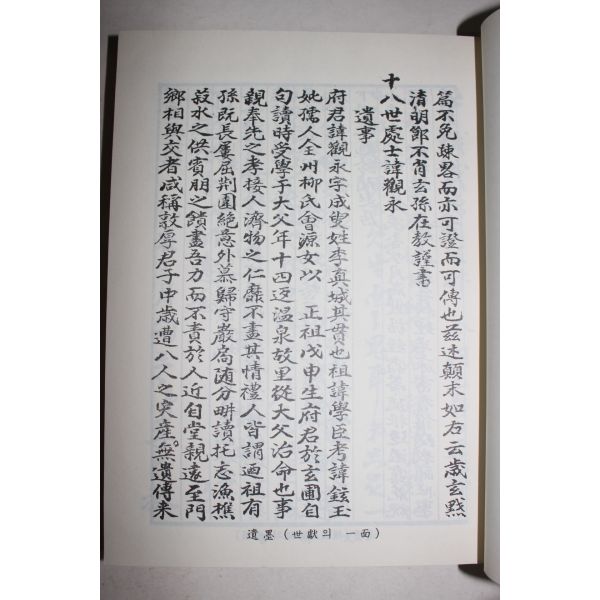 篇不免疎畧而亦可證而可傳也玆述顛末如右云歲玄黓
清明節不肖玄孫在敎謹書
十八世處士諱觀永
遺事
府君諱觀永字成叟姓李眞城其貫也祖諱學臣考諱鉉玉
妣孺人全州柳氏會源女以 正祖戊申生府君於玄圃自
句讀時受學于大父年十四返溫泉故里從大父治命也事
親奉先之孝接人濟物之仁靡不盡其情禮人皆謂迺祖有
孫旣長屢屈荆圍絶意外慕歸守巖扃随分畊讀托志漁樵
菽水之供賓朋之饋盡吾力而不責於人近自堂親遠至門
鄉相與交者咸稱敦厚君子中歲遭八人之灾產無遺傳来
遺墨 (世獻의 一面)